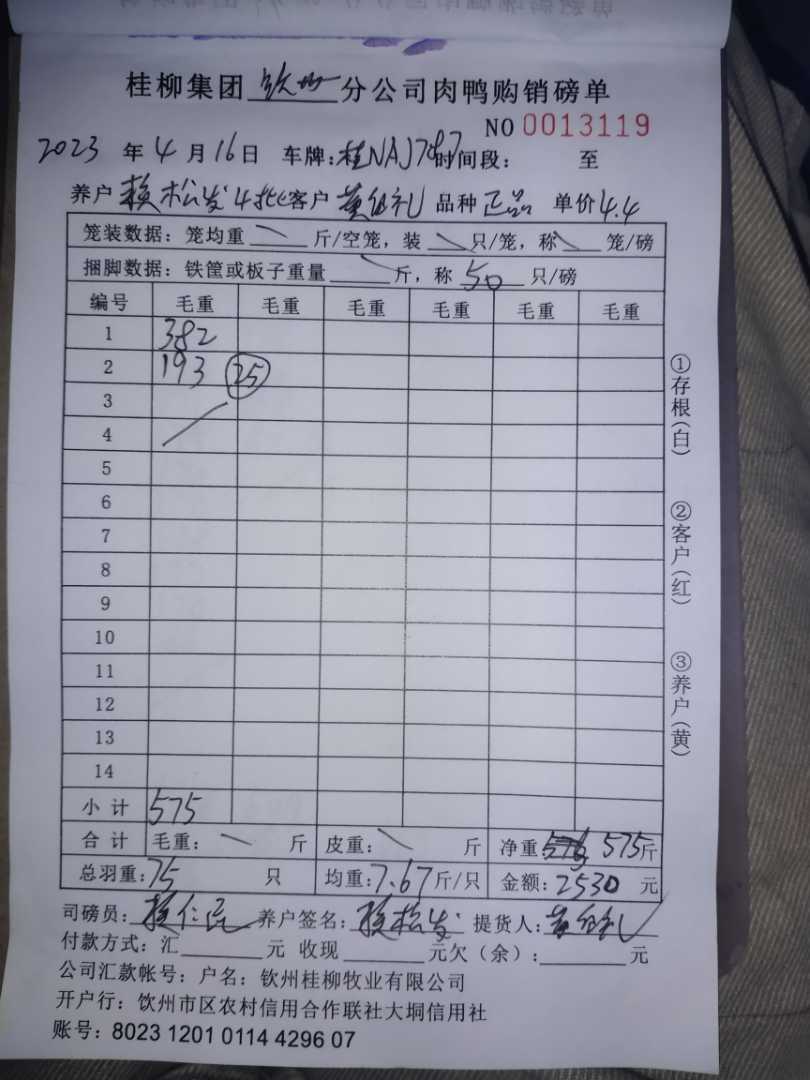 桂柳集团 钦州 分公司肉鸭购销磅单
NO 0013119
2023 年 4 月 16 日 车牌:桂NAJ787 时间段: 至
养户 赖松发 4批 客户 黄 礼 品种 正品 单价 4.4
笼装数据:笼均重 \ 斤/空笼,装 \ 只/笼,称 \ 笼/磅
捆脚数据:铁筐或板子重量 \ 斤,称 50 只/磅
编号 毛重 毛重 毛重 毛重 毛重 毛重
1 382
2 193 25
3
4
5
6
7
8
9
10
11
12
13
14
小计 575
合计 毛重: \ 斤 皮重: \ 斤 净重 575斤
总羽重:75 只 均重:7.67斤/只 金额:2530 元
司磅员: 仁 养户签名:赖松发 提货人:黄 礼
付款方式:汇 元 收现 元欠(余): 元
公司汇款帐号:户名:钦州桂柳牧业有限公司
开户行:饮州市区农村信用合作联社大垌信用社
账号:8023 1201 0114 4296 07
①存根(白)
②客户(红)
③养户(黄)